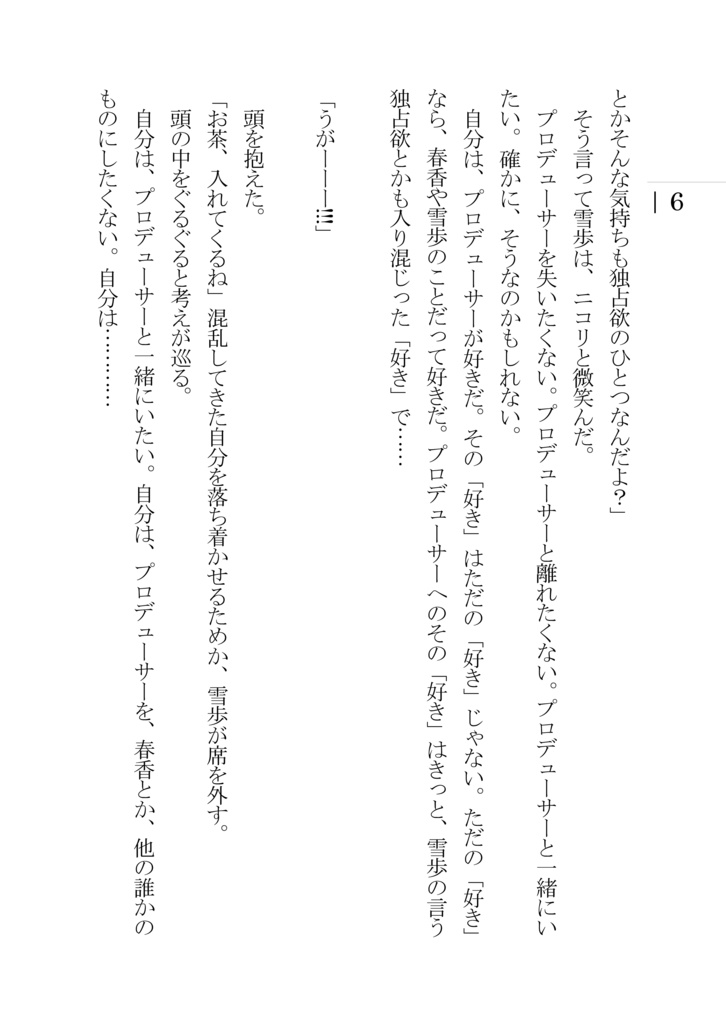 6
とかそんな気持ちも独占欲のひとつなんだよ？」
そう言って雪歩は、ニコリと微笑んだ。
プロデューサーを失いたくない。プロデューサーと離れたくない。プロデューサーと一緒にい
たい。確かに、そうなのかもしれない。
自分は、プロデューサーが好きだ。その「好き」はただの「好き」じゃない。ただの「好き」
なら、春香や雪歩のことだって好きだ。プロデューサーへのその「好き」はきっと、雪歩の言う
独占欲とかも入り混じった「好き」で……
「うがーーー!!!」
頭を抱えた。
「お茶、入れてくるね」混乱してきた自分を落ち着かせるためか、雪歩が席を外す。
頭の中をぐるぐると考えが巡る。
自分は、プロデューサーと一緒にいたい。自分は、プロデューサーを、春香とか、他の誰かの
ものにしたくない。自分は…………